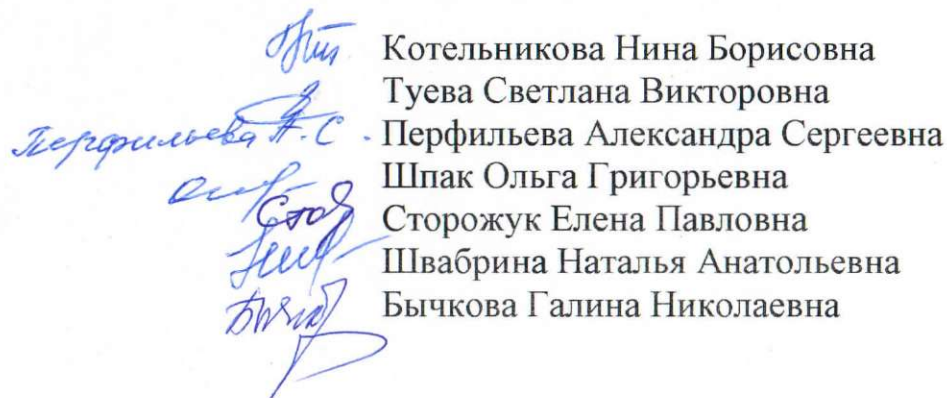 Котельникова Нина Борисовна
Туева Светлана Викторовна
Перфильева А.С. Перфильева Александра Сергеевна
Шпак Ольга Григорьевна
Сто Сторожук Елена Павловна
Швабрина Наталья Анатольевна
Бычкова Галина Николаевна